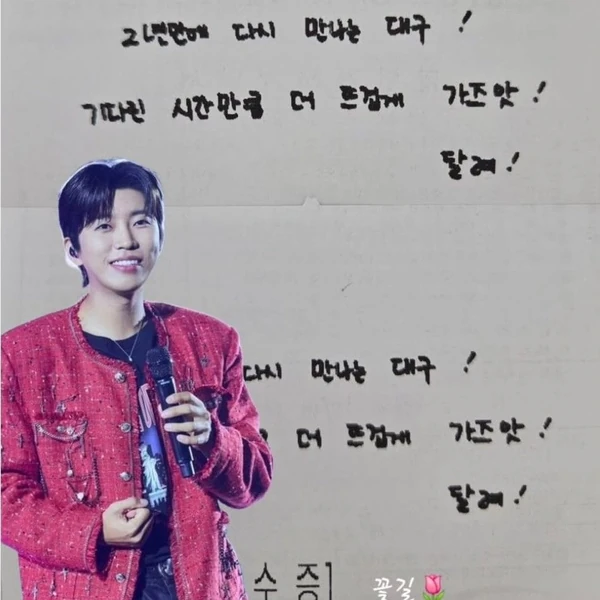 2년만에 다시 만나는 대구!
기다린 시간만큼 더 뜨겁게 가즈앗!
달려!
다시 만나는 대구!
더 뜨겁게 가즈앗!
달려!
수증
꽃길